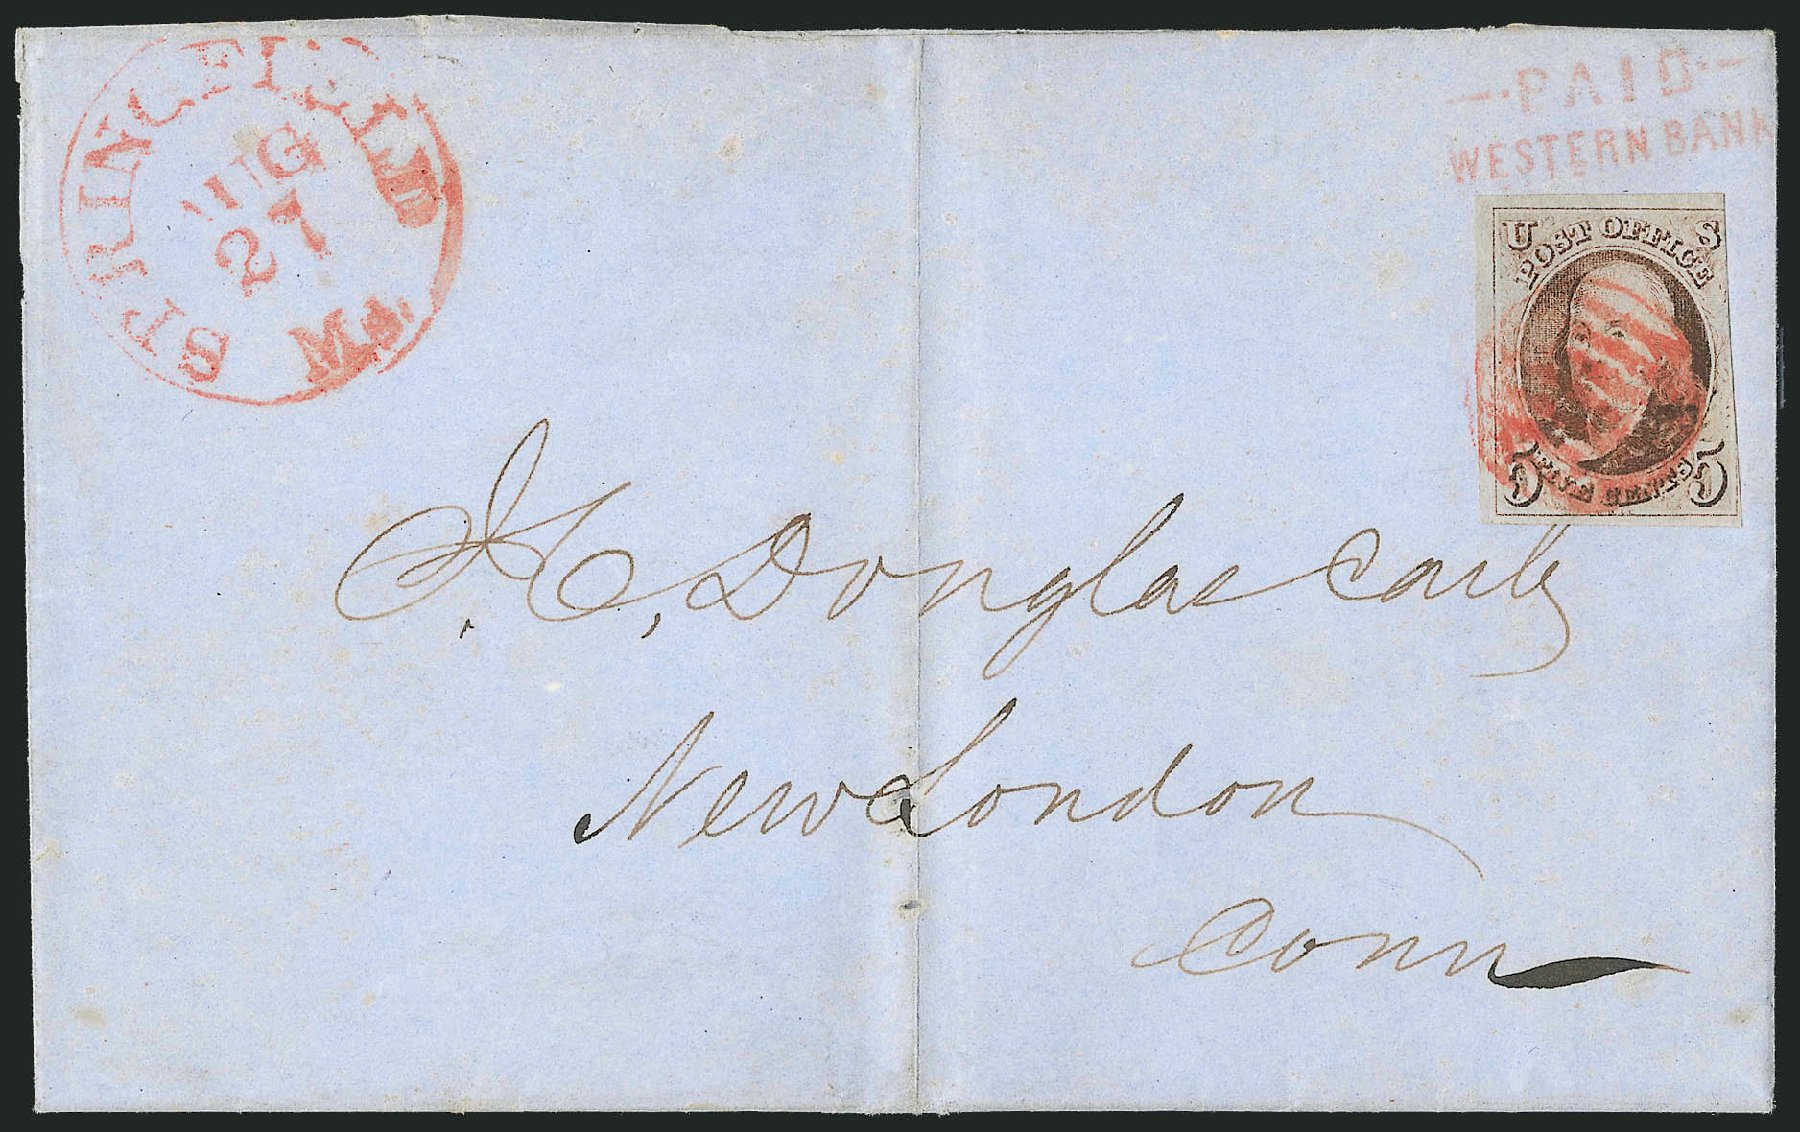 SPRINGFIELD Ms.
AUG
27
PAID
WESTERN BANK
U S
POST OFFICE
5 FIVE CENTS 5
Douglas
New London
Conn